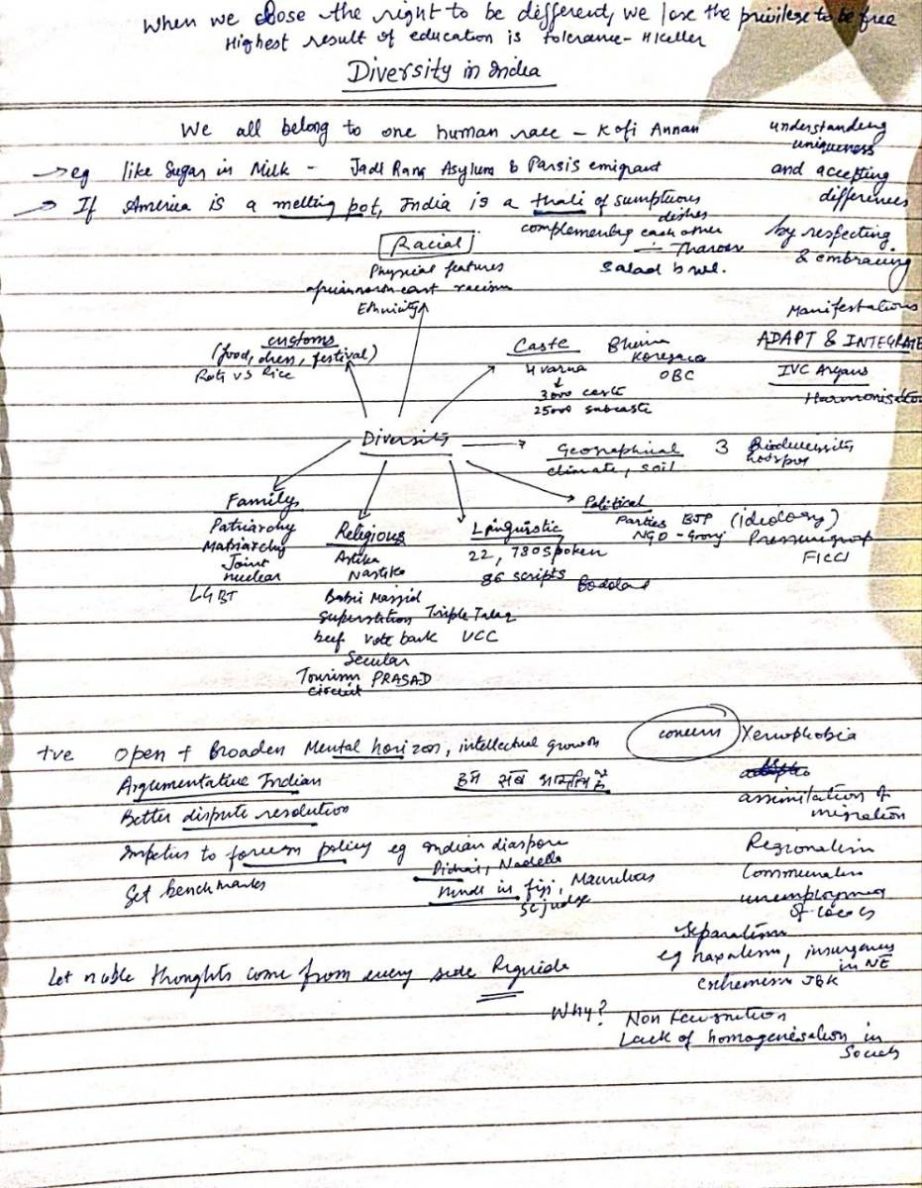 When we lose the right to be different, we lose the privilege to be free
Highest result of education is tolerance - HKeller
Diversity in India
We all belong to one human race - Kofi Annan
understanding
uniqueness
and accepting
differences
by respecting
& embracing
→ eg like Sugar in Milk - Jadi Rana Asylum to Parsis emigrant
→ If America is a melting pot, India is a thali of sumptuous
dishes
complementing each other
- Tharoor
Salad bowl.
Racial
Physical features
northeast racism
Ethnicity
Manifestations
ADAPT & INTEGRATE
IVC Aryans
Harmonisation
customs
(food, dress, festival)
Roti vs Rice
Caste
4 varna
↓
3000 caste
25000 subcaste
Bhima
Koregaon
OBC
Diversity
Geographical
climate, soil
3 Biodiversity
hotspot
Political
Parties BJP (ideology)
NGO - Pressuregroup
FICCI
Family
Patriarchy
Matriarchy
Joint
nuclear
LGBT
Religious
Astika
Nastika
Babri Masjid
Superstition Triple Talaq
beef vote bank UCC
Secular
Tourism PRASAD
circuit
Linguistic
22, 780 spoken
86 scripts
Bodoland
+ve Open + Broaden Mental horizon, intellectual growth
Argumentative Indian
Better dispute resolution
Impetus to foreign policy eg Indian diaspora
Pichai, Nadella
Hindi in fiji, Mauritius
SC judge
Set benchmarks
concern
Xenophobia
assimilation of
migration
Regionalism
Communalism
unemployment
of locals
Separatism
eg naxalism, insurgency
in NE
extremism J&K
Let noble thoughts come from every side Rigveda
Why? Non
Lack of homogenisation in
Society